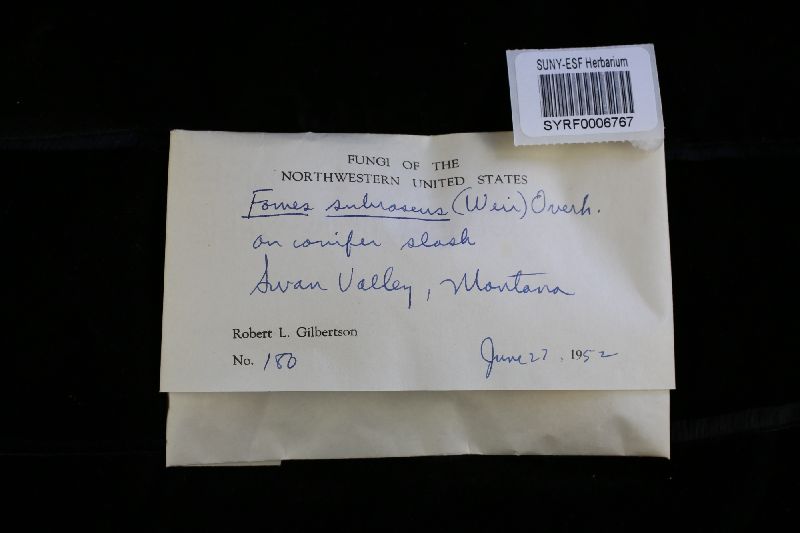 SUNY-ESF Herbarium
SYRF0006767
FUNGI OF THE
NORTHWESTERN UNITED STATES
Fomes subroseus (Weir) Overh.
on conifer slash
Swan Valley, Montana
Robert L. Gilbertson
No. 180
June 27, 1952